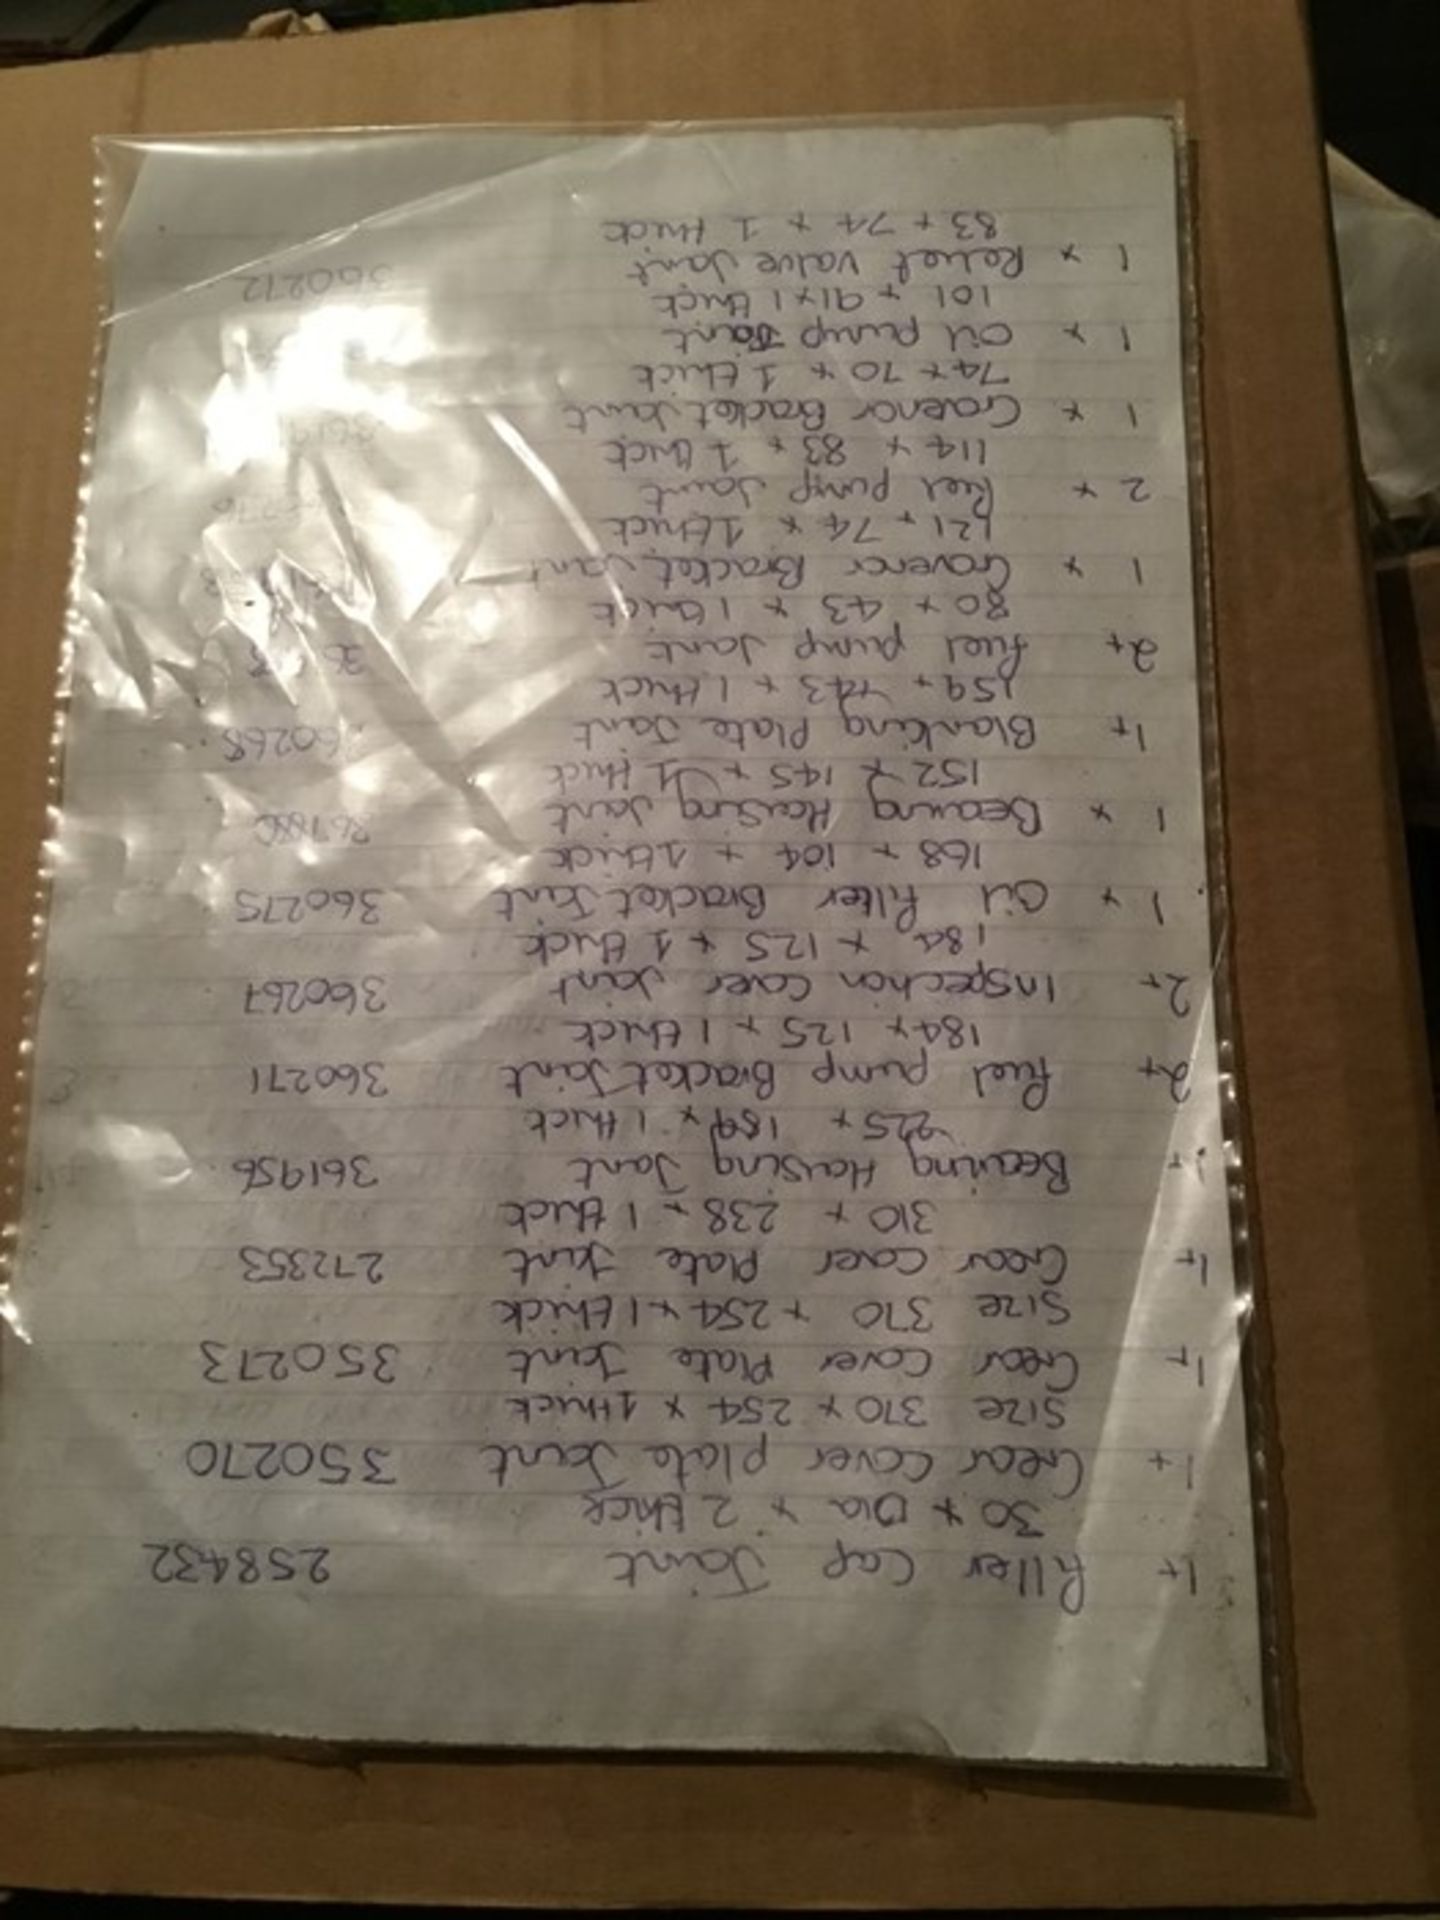 1x Filler Cap Joint 258432
30 x Dia x 2 thick
1x Gear Cover plate Joint 350270
Size 370 x 254 x 1 thick
1x Gear Cover Plate Joint 350273
Size 370 x 254 x 1 thick
1x Gear Cover Plate Joint 272353
310 x 238 x 1 thick
Bearing Housing Joint 361956
225 x 189 x 1 thick
2x Fuel pump Bracket Joint 360271
184 x 125 x 1 thick
2x Inspection Cover Joint 360267
184 x 125 x 1 thick
1 x Oil Filter Bracket Joint 360275
168 x 104 x 1 thick
1 x Bearing Housing Joint
152 x 145 x 1 thick
1x Blanking Plate Joint 360268
159 x 143 x 1 thick
2x Fuel pump Joint
80 x 43 x 1 thick
1 x Governor Bracket Joint
121 x 74 x 1 thick
2 x Fuel pump Joint
114 x 83 x 1 thick
1 x Governor Bracket Joint
74 x 70 x 1 thick
1 x Oil pump Joint
101 x 91 x 1 thick
1 x Relief Valve Joint 360272
83 x 74 x 1 thick